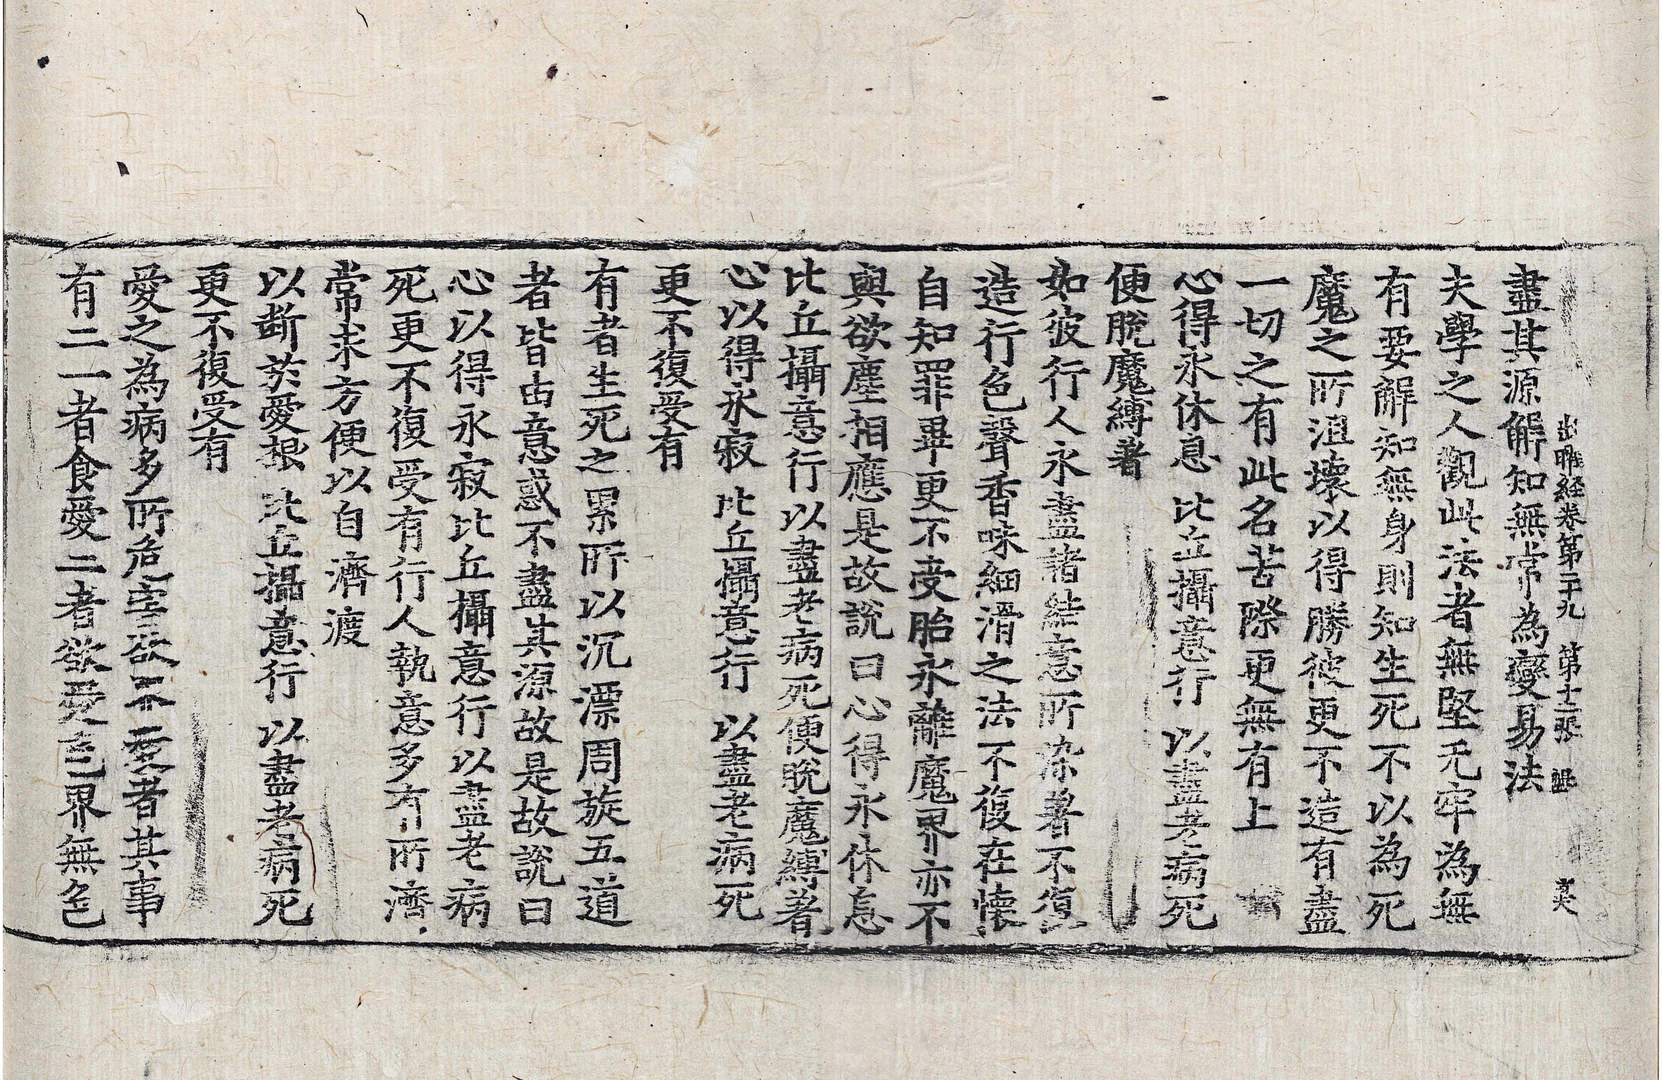 出曜経卷第二十九 第十二張
盡其源解知無常為變易法
夫學之人觀此法者無堅无牢為無
有要解知無身則知生死不以為死
魔之所沮壞以得勝彼更不造有盡
一切之有此名苦際更無有上
心得永休息 比丘攝意行 以盡老病死
便脫魔縛著
如彼行人永盡諸結意所染著不復
造行色聲香味細滑之法不復在懷
自知罪畢更不受胎永離魔界亦不
與欲塵相應是故說曰心得永休息
比丘攝意行以盡老病死便脫魔縛著
心以得永寂 比丘攝意行 以盡老病死
更不復受有
有者生死之累所以沉漂周旋五道
者皆由意惑不盡其源故是故說曰
心以得永寂比丘攝意行以盡老病
死更不復受有行人執意多有所濟
常求方便以自濟渡
以斷於愛根 比丘攝意行 以盡老病死
更不復受有
愛之為病多所危害欲界愛者其事
有二一者食愛二者欲愛色界無色